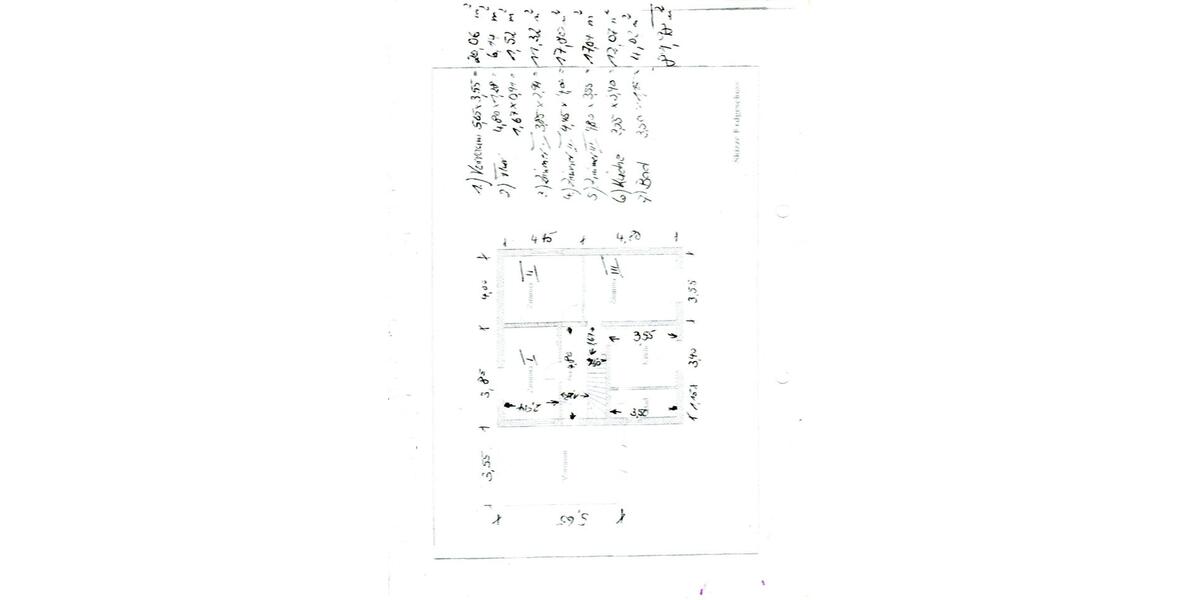 1) Vorraum 5,65 x 3,55 = 20,06 m²
2) Flur 4,80 x 1,28 = 6,14 m²
1,67 x 0,91 = 1,52 m²
3) Zimmer I 3,85 x 2,94 = 11,32 m²
4) Zimmer II 4,45 x 4,00 = 17,80 m²
5) Zimmer III 4,80 x 3,55 = 17,04 m²
6) Küche 3,55 x 3,40 = 12,07 m²
7) Bad 3,50 x 1,15 = 4,02 m²
Skizze Erdgeschoss
4,00
3,85
3,55
Zimmer II
Zimmer III
Zimmer I
4,80
1,67
2,94
3,55
3,50
Bad
Vorraum
5,65
3,55
3,40
1,15